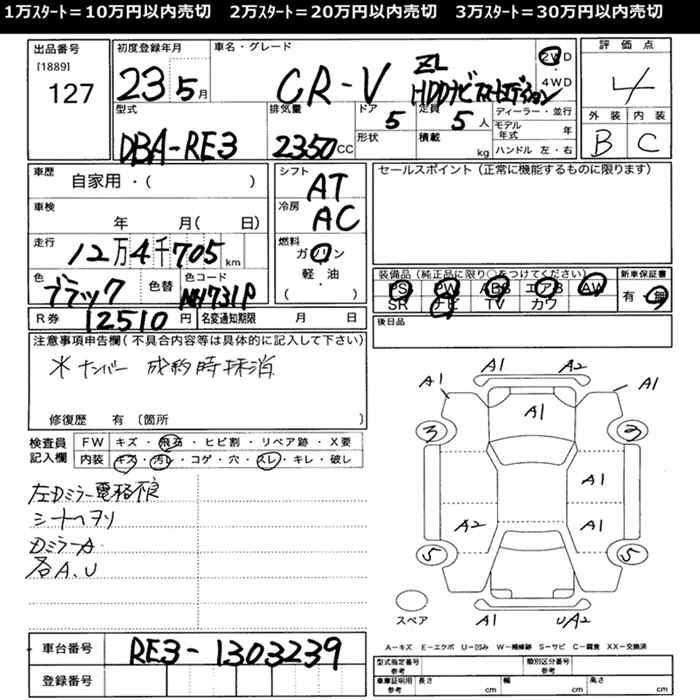 1万ｽﾀｰﾄ＝10万円以内売切　2万ｽﾀｰﾄ＝20万円以内売切　3万ｽﾀｰﾄ＝30万円以内売切
出品番号
[1889]
127
初度登録年月
23 5月
車名・グレード
CR-V ZL
HDDナビ
2WD
4WD
評価点
4
外装 内装
B C
型式
DBA-RE3
排気量
2350CC
ドア 5
形状
定員 5人
積載 kg
ディーラー・並行
モデル年式 年
ハンドル 左・右
車歴
自家用・( )
車検
年 月( 日)
走行
12万4千705km
色 ブラック
色替
色コード
シフト
AT
冷房
AC
燃料
ガソリン
軽・油
( )
セールスポイント（正常に機能するものに限ります）
装備品（純正品に限り○をつけてください）
PS PW ABS エアB AW
SR ナビ TV カワ
新車保証書
有・無
R券 12510円
名変通知期限 月 日
後日品
注意事項申告欄(不具合内容等は具体的に記入して下さい)
※ナンバー 成約時抹消
修復歴 有 (箇所 )
検査員記入欄
FW キズ・飛石・ヒビ割・リペア跡・X要
内装 キズ・汚レ・コゲ・穴・スレ・キレ・破レ
左Dミラー電格
Dミラー
各A、U
A1 A2
A1 A1
A1
3 3
A1
A2 A1
5 5
スペア
A1 UA2
車台番号
RE3-1303239
登録番号
A－キズ E－エクボ U－凹み W－補修跡 S－サビ C－腐食 XX－交換済
型式指定番号 参考
類別区分番号 参考
車庫証明用 参考
長さ cm
幅 cm
高さ cm